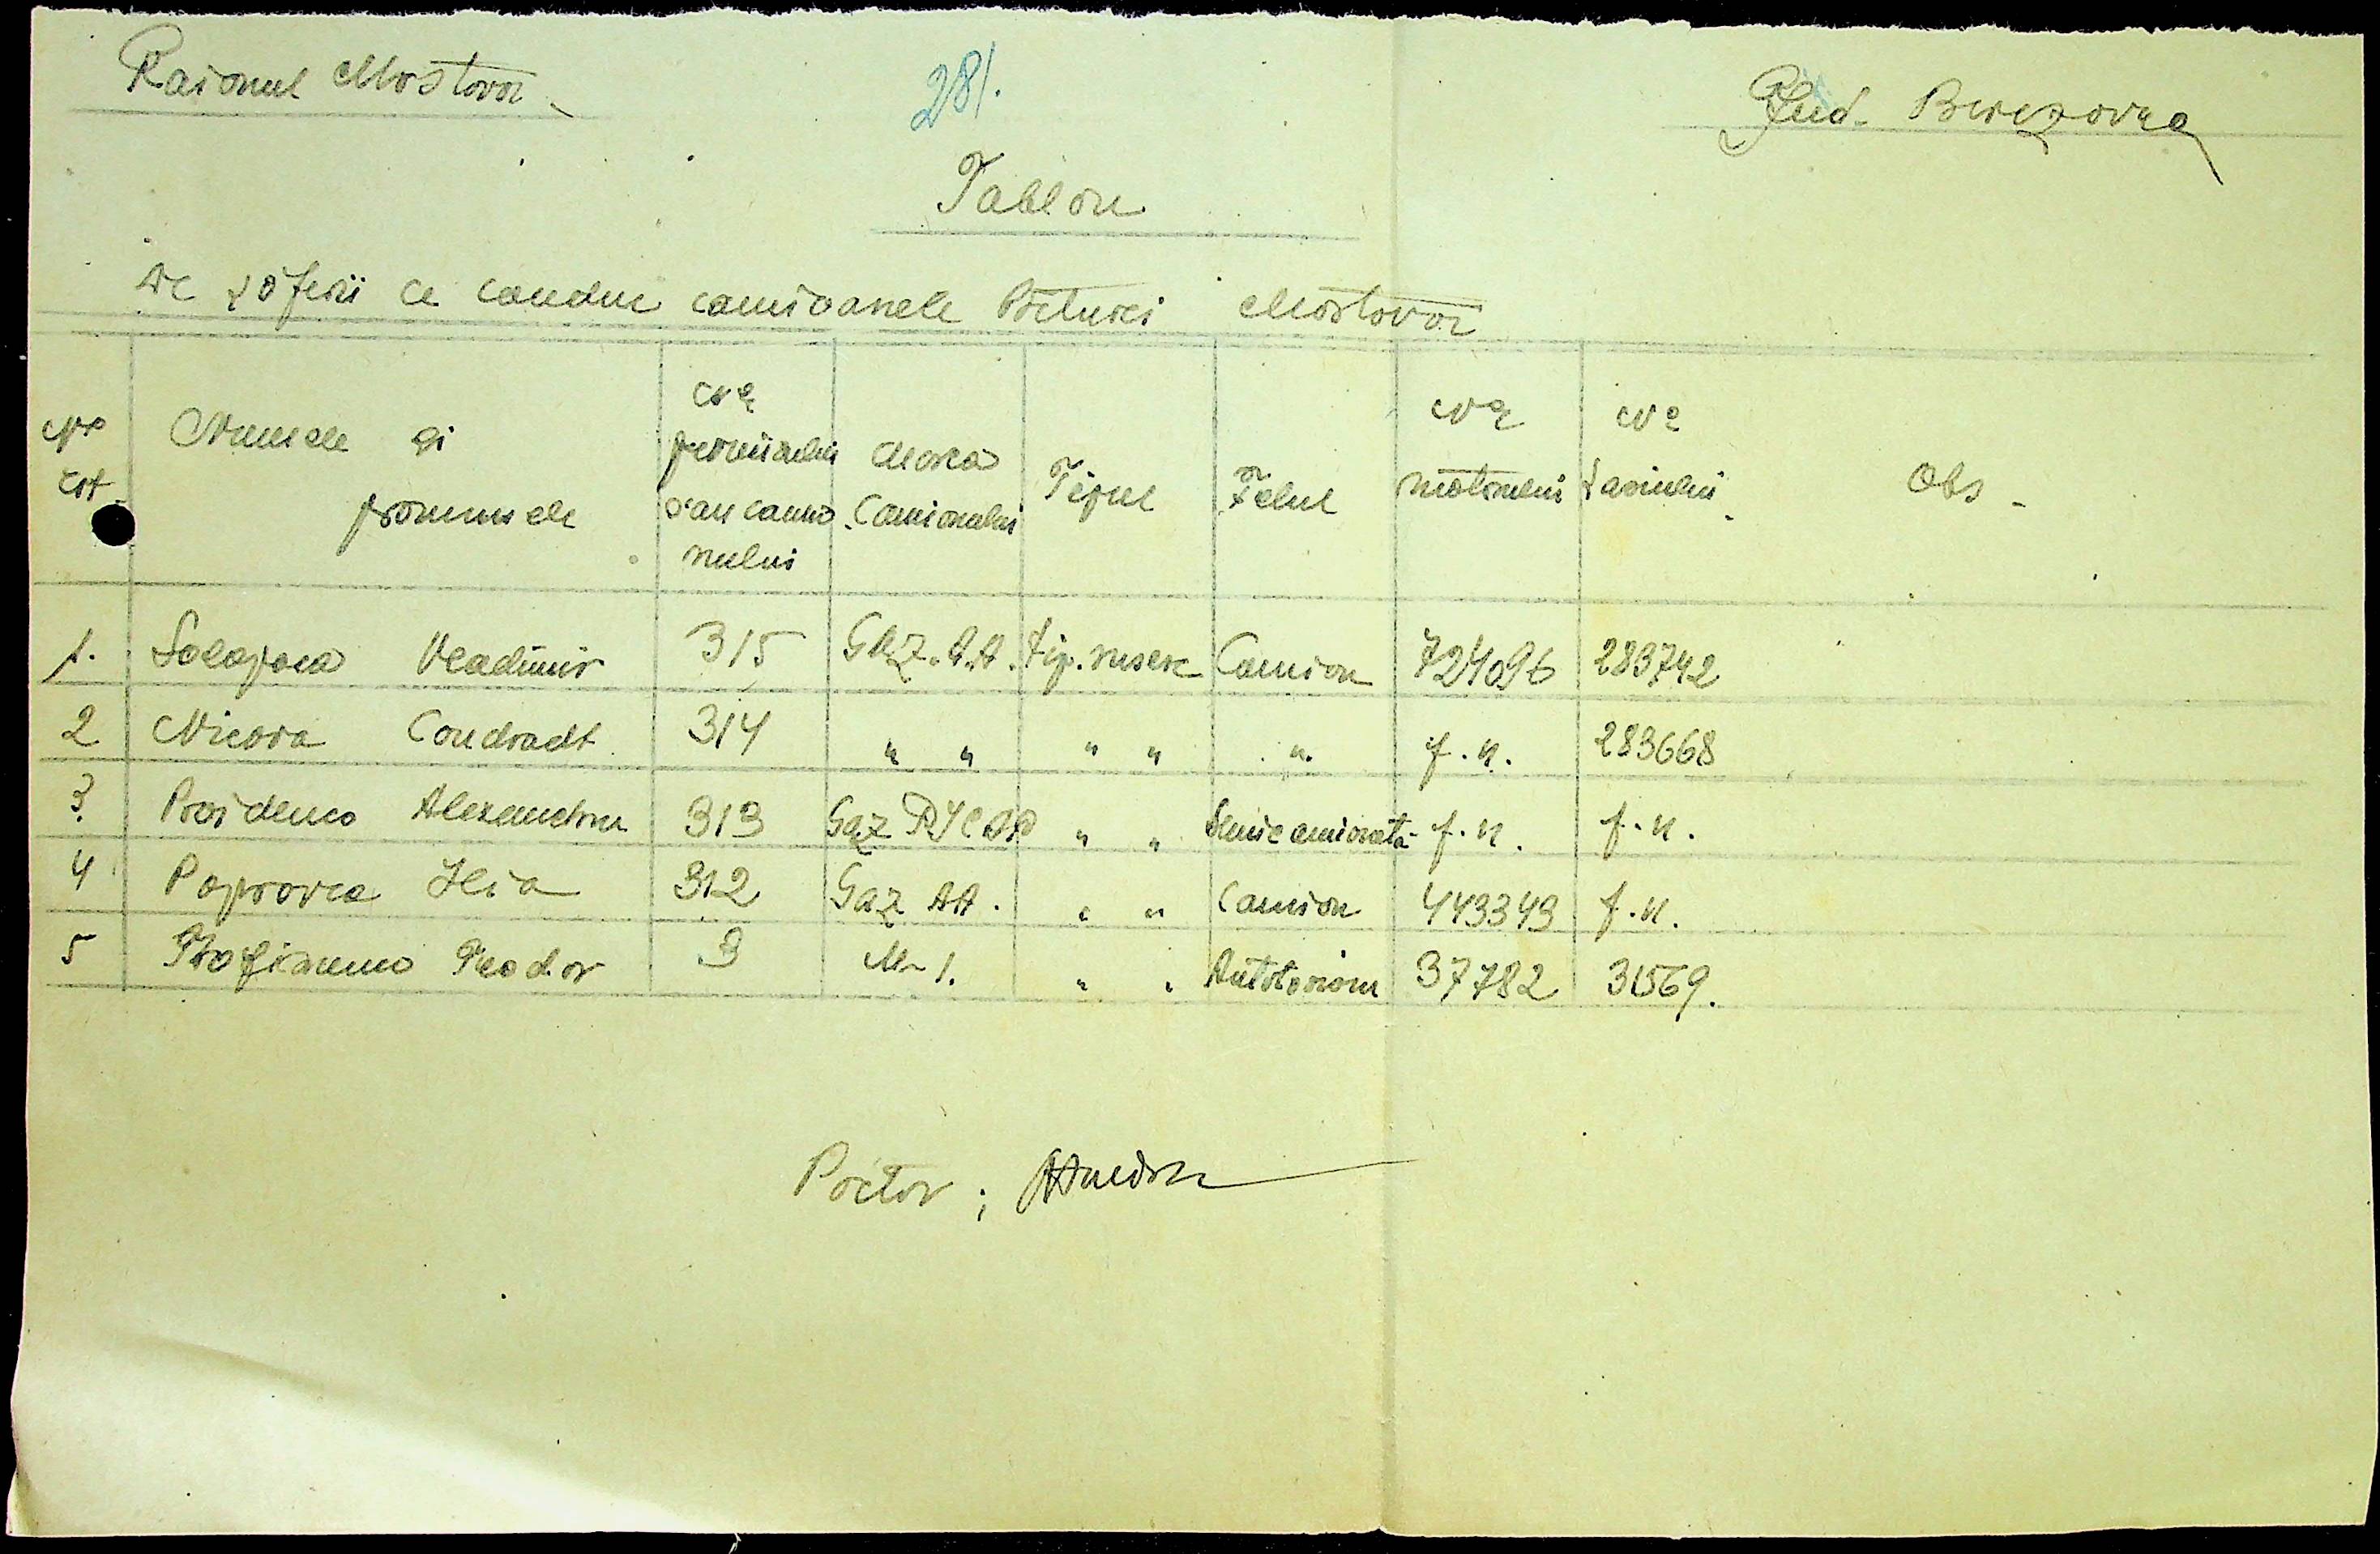 Raionul Mostovoi
281.
Jud. Berezovca
Tablou
de șoferii ce conduc camioanele Preturei Mostovoi
Nr crt. Numele și pronumele Nr permisului sau camionului Marca Camionului Tipul Felul Nr motorului Nr șasiului Obs
1. Vladimir 315 GAZ.A.A. tip. rusesc Camion 724096 283742
2 Nicora Condradt 314 " " " " " f.n. 283668
3 Alexandru 313 Gaz " " Semicamionetă f.n. f.n.
4 Ilia 312 Gaz AA. " " Camion 443343 f.n.
5 Teodor 3 M-1. " " Autoturism 37782 31569.
Pretor;